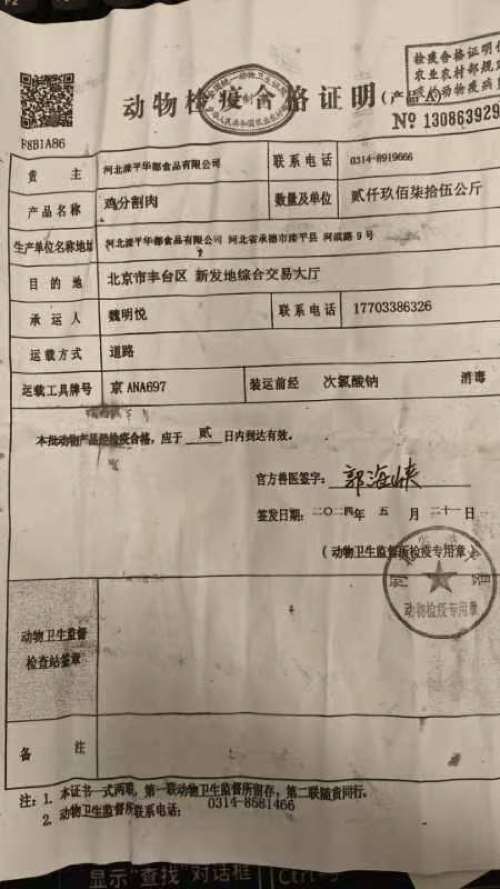 检疫合格证明
农业农村部规定
动物疫病
动物检疫合格证明(产品A)
F8B1A86
№ 130863929
货主 河北滦平华都食品有限公司 联系电话 0314-8919666
产品名称 鸡分割肉 数量及单位 贰仟玖佰柒拾伍公斤
生产单位名称地址 河北滦平华都食品有限公司 河北省承德市滦平县 河滨路9号
目的地 北京市丰台区 新发地综合交易大厅
承运人 魏明悦 联系电话 17703386326
运载方式 道路
运载工具牌号 京ANA697 装运前经 次氯酸钠 消毒
本批动物产品经检疫合格,应于 贰 日内到达有效。
官方兽医签字:郭海峡
签发日期:二〇二四年 五 月 二十一 日
(动物卫生监督所检疫专用章)
动物检疫专用章
动物卫生监督
检查站签章
备注
注:1. 本证书一式两联,第一联动物卫生监督所留存,第二联随货同行。
2. 动物卫生监督所联系电话:0314-8581466
显示"查找"对话框 Ctrl